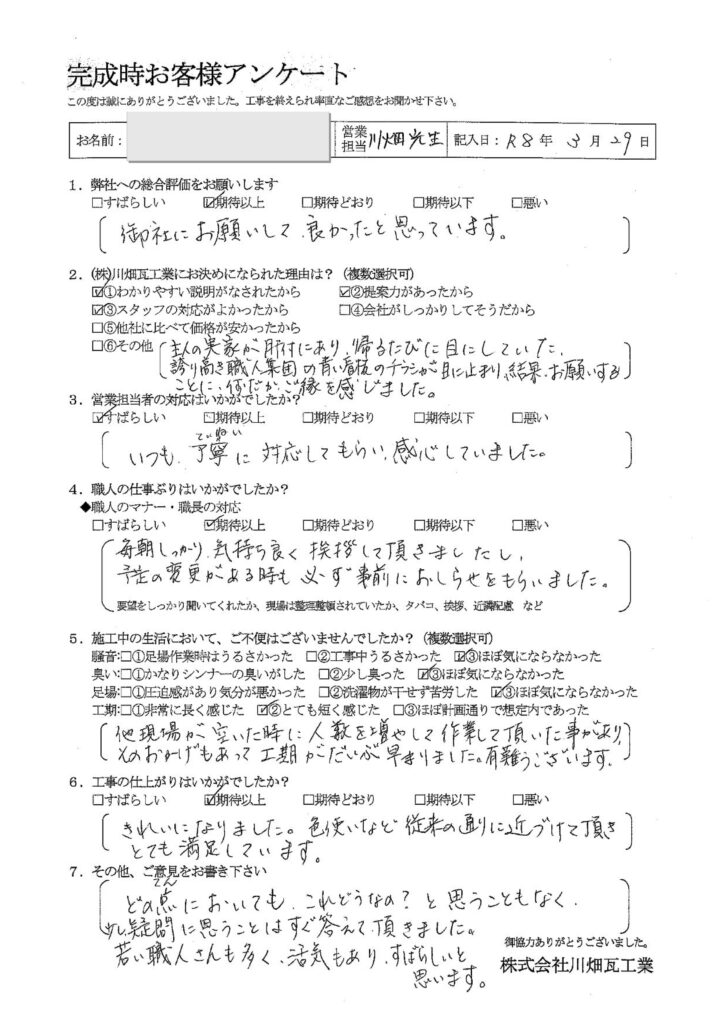 完成時お客様アンケート
この度は誠にありがとうございました。工事を終えられ率直なご感想をお聞かせ下さい。
お名前： 営業担当 川畑先生 記入日：R8年 3月29日
1．弊社への総合評価をお願いします
□すばらしい ☑期待以上 □期待どおり □期待以下 □悪い
御社にお願いして良かったと思っています。
2．(株)川畑瓦工業にお決めになられた理由は？（複数選択可）
☑①わかりやすい説明がなされたから ☑②提案力があったから
☑③スタッフの対応がよかったから □④会社がしっかりしてそうだから
□⑤他社に比べて価格が安かったから
□⑥その他 主人の実家が肝付にあり、帰るたびに目にしていた、
誇り高き職人集団の青い看板のチラシが目に止まり、結果、お願いする
ことに、何だかご縁を感じました。
3．営業担当者の対応はいかがでしたか？
☑すばらしい □期待以上 □期待どおり □期待以下 □悪い
いつも、丁寧（ていねい）に対応してもらい、感心していました。
4．職人の仕事ぶりはいかがでしたか？
◆職人のマナー・職長の対応
□すばらしい ☑期待以上 □期待どおり □期待以下 □悪い
毎朝しっかり、気持ち良く挨拶して頂きましたし、
予定の変更がある時も必ず事前におしらせをもらいました。
要望をしっかり聞いてくれたか、現場は整理整頓されていたか、タバコ、挨拶、近隣配慮 など
5．施工中の生活において、ご不便はございませんでしたか？（複数選択可）
騒音:□①足場作業時はうるさかった □②工事中うるさかった ☑③ほぼ気にならなかった
臭い:□①かなりシンナーの臭いがした □②少し臭った ☑③ほぼ気にならなかった
足場:□①圧迫感があり気分が悪かった □②洗濯物が干せず苦労した ☑③ほぼ気にならなかった
工期:□①非常に長く感じた ☑②とても短く感じた □③ほぼ計画通りで想定内であった
他現場が空いた時に人数を増やして作業して頂いた事があり、
そのおかげもあって工期がだいぶ早まりました。有難うございます。
6．工事の仕上がりはいかがでしたか？
□すばらしい ☑期待以上 □期待どおり □期待以下 □悪い
きれいになりました。色使いなど従来の通りに近づけて頂き
とても満足しています。
7．その他、ご意見をお書き下さい
どの点（てん）においても、これどうなの？と思うこともなく、
少し疑問に思うことはすぐ答えて頂きました。
若い職人さんも多く、活気もあり、すばらしいと
思います。
御協力ありがとうございました。
株式会社川畑瓦工業